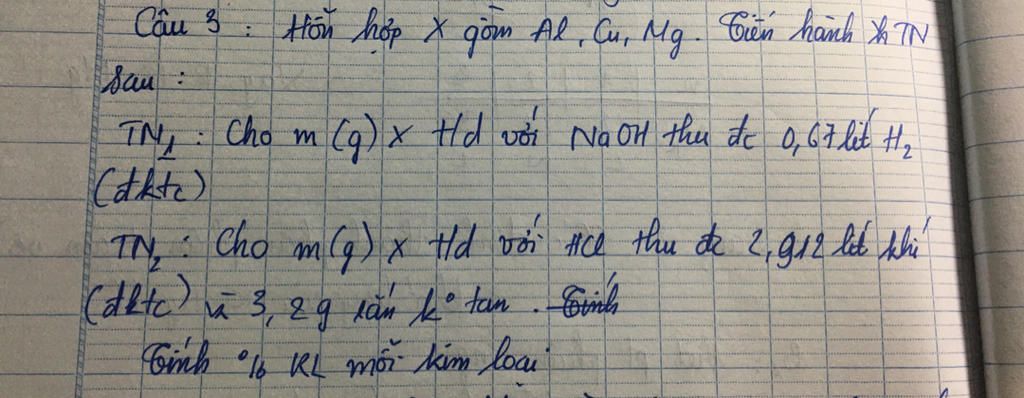 Câu 3 : Hỗn hợp X gồm Al, Cu, Mg. Tiến hành TN
sau :
TN1 : Cho m (g) X t/d với NaOH thu đc 0,67 lít H2
(đktc)
TN2 : Cho m (g) X t/d với HCl thu đc 2,912 lít khí
(đktc) và 3,2g rắn ko tan. Tính
Tính % KL mỗi kim loại